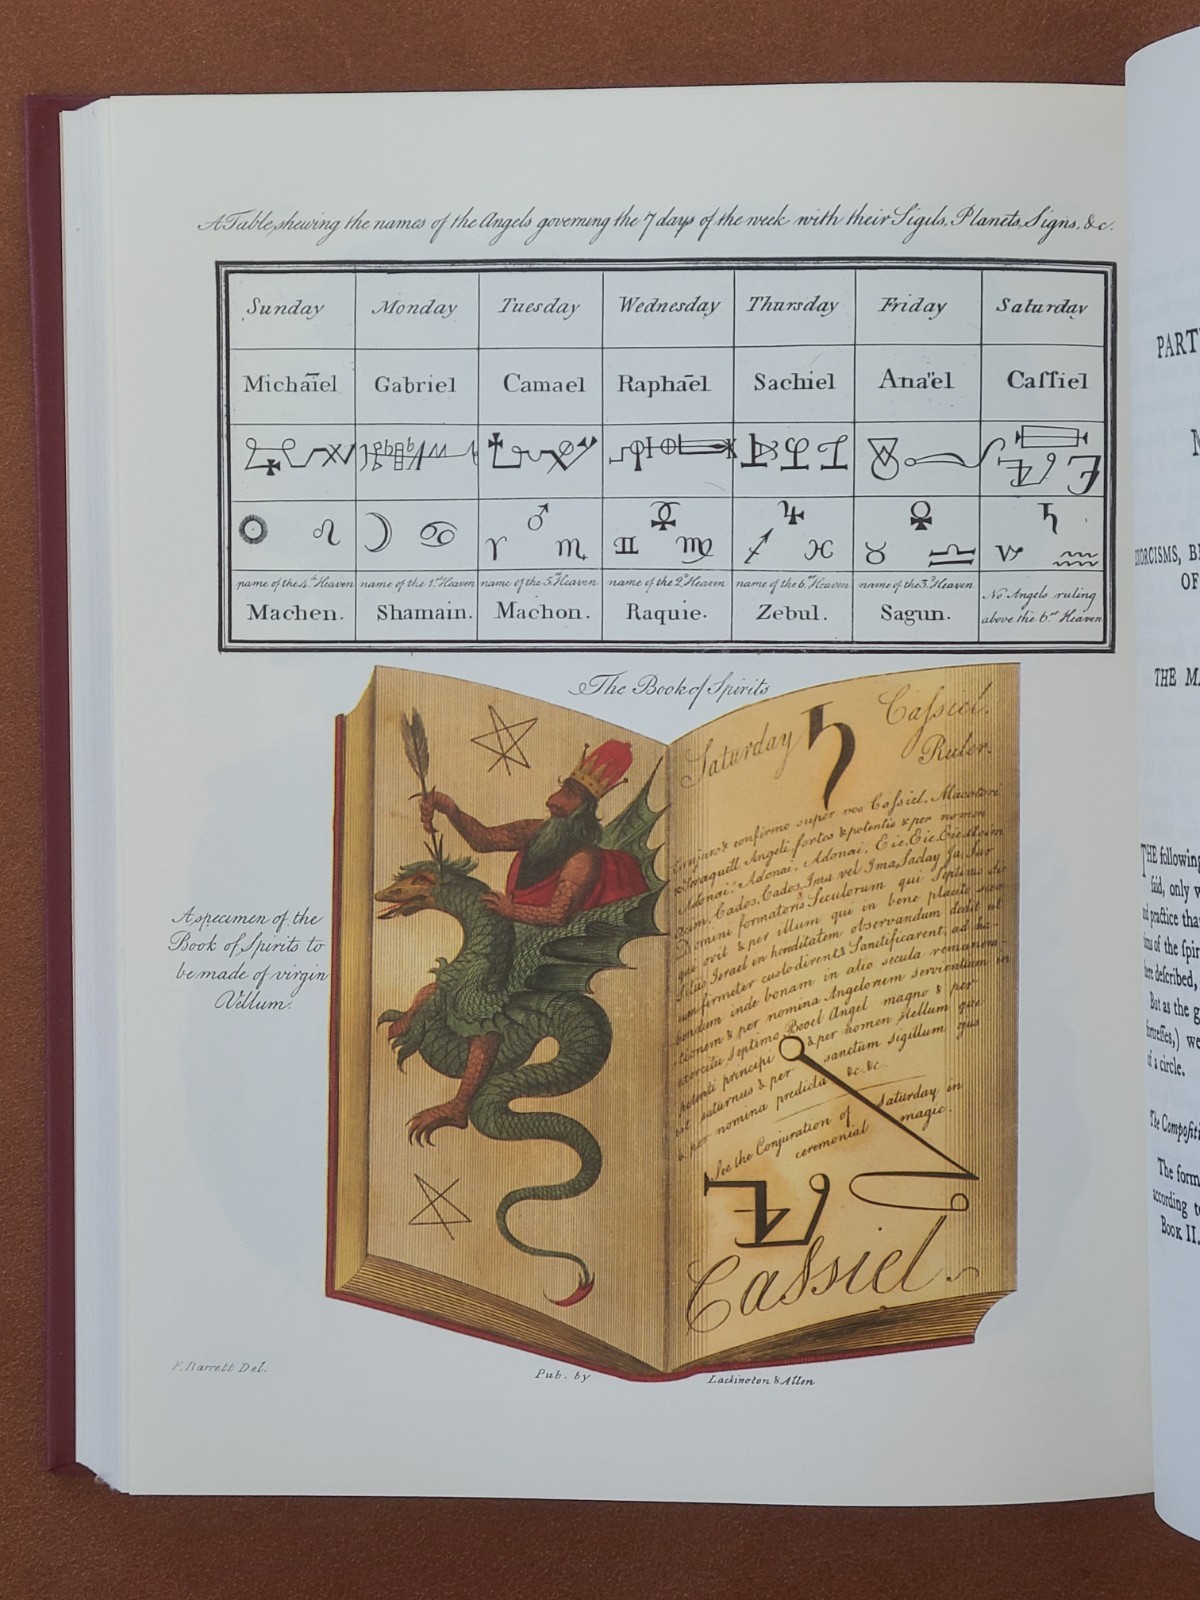 A Table, shewing the names of the Angels governing the 7 days of the week with their Sigils, Planets, Signs, &c.
Sunday Monday Tuesday Wednesday Thursday Friday Saturday
Michaïel Gabriel Camael Raphaēl Sachiel Anaël Caſſiel
☉ ♌ ☽ ♋ ♂ ♈ ♏ ☿ ♊ ♍ ♃ ♐ ♓ ♀ ♉ ♎ ♄ ♑ ♒
name of the 4th Heaven name of the 1st Heaven name of the 5th Heaven name of the 2d Heaven name of the 6th Heaven name of the 3d Heaven No Angels ruling
Machen. Shamain. Machon. Raquie. Zebul. Sagun. above the 6th Heaven
The Book of Spirits
A specimen of the
Book of Spirits to
be made of virgin
Vellum.
Saturday ♄ Caſsiel.
Ruler.
Conjuro & confirmo super vos Caſsiel, Macatori
& Seraquiel Angeli fortes & potentis & per nomen
Adonai, Adonai, Adonai, Eie, Eie, Eie,
Cados, Cados, Ima vel Ima, Saday, Ja, Sar
Domini formatoris Seculorum qui Septimo die
& per illum qui in bene placito suo
filiis Israel in hereditatem observandum dedit ut
eum firmiter custodirent & Sanctificarent, ad ha-
bendum inde bonam in alio secula remunera-
tionem & per nomina Angelorum servientium in
exercitu septimo Booel Angel magno & per
potenti principi & per nomen stellum que
est saturnus & per sanctum sigillum ejus
& per nomina predicta &c. &c.
See the Conjuration of Saturday in
ceremonial magic.
Caſsiel
F. Barrett Del.
Pub. by Lackington & Allen
PART
EXORCISMS,
OF
THE
THE following
ſaid, only
and practice
of the
here deſcribed,
But as the
fortreſſes,) we
of a circle.
The
The form
according
Book II.